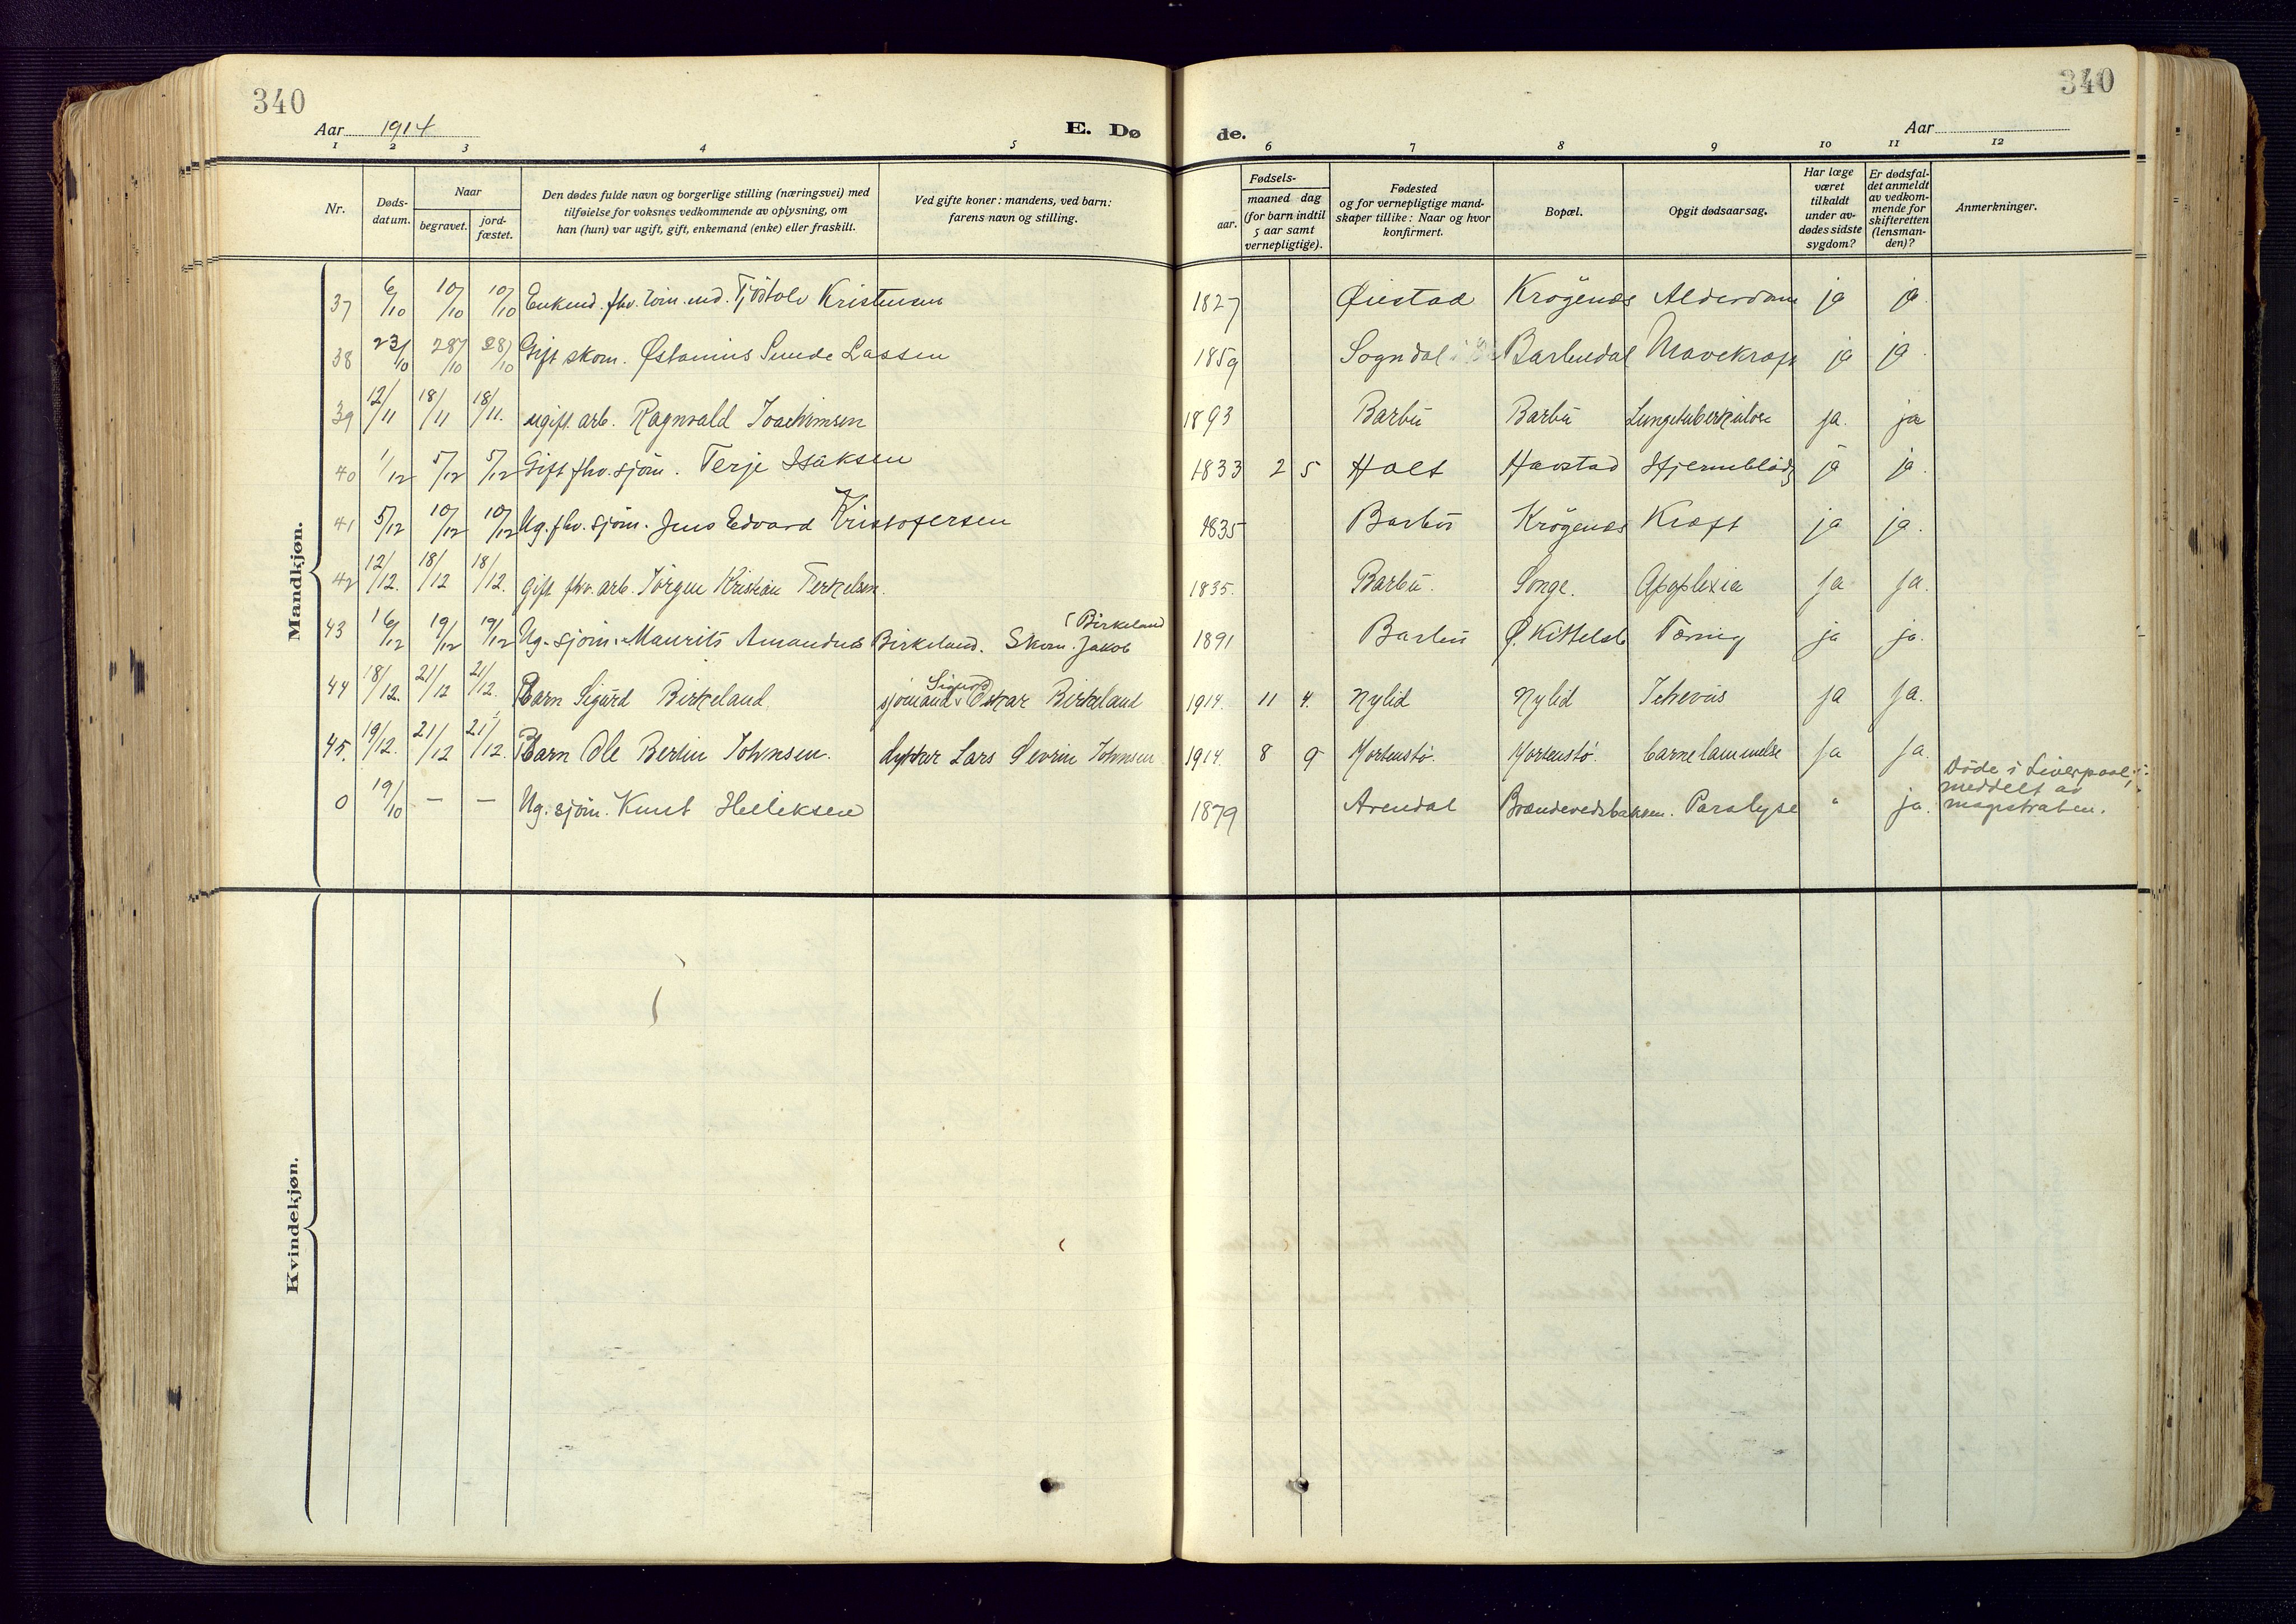 340
340
Aar 1914
E. Dø
de.
Aar
1 2 3 4 5 6 7 8 9 10 11 12
Nr.
Døds-
datum.
Naar
begravet.
jord-
fæstet.
Den dødes fulde navn og borgerlige stilling (næringsvei) med
tilføielse for voksnes vedkommende av oplysning, om
han (hun) var ugift, gift, enkemand (enke) eller fraskilt.
Ved gifte koner: mandens, ved barn:
farens navn og stilling.
Fødsels-
aar.
maaned dag
(for barn indtil
5 aar samt
vernepligtige).
Fødested
og for vernepligtige mand-
skaper tillike: Naar og hvor
konfirmert.
Bopæl.
Opgit dødsaarsag.
Har læge
været
tilkaldt
under av-
dødes sidste
sygdom?
Er dødsfal-
det anmeldt
av vedkom-
mende for
skifteretten
(lensman-
den)?
Anmerkninger.
Mandkjøn.
37 6/10 10/10 10/10 Enkemd. fhv. tøm.md. Tjöstolv Kristensen 1827 Øiestad Krögenes Alderdom ja ja.
38 23/10 28/10 28/10 Gift skom. Østanius Sunde Lassen 1859 Sogndal i Barbudal Mavekræft ja ja
39 12/11 18/11 18/11. ugift. arb. Ragnvald Joachimsen 1893 Barbu Barbu Lungetuberkulose ja. ja
40 1/12 5/12 5/12 Gift fhv. sjöm. Terje Isaksen 1833 2 5 Holt Havstad Hjerneblödg ja ja.
41 5/12 10/12 10/12 Ug. fhv. sjöm. Jens Edvard Kristofersen 1835 Barbu Krögenes Kræft ja ja.
42 12/12. 18/12 18/12. gift fhv. arb. Jörgen Kristian Terkelsen. 1835. Barbu. Songe. Apoplexia ja ja.
43 16/12 19/12 19/12 Ug. sjöm. Maurits Amandus Birkeland. Skom. Jakob (Birkeland 1891 Barbu Ø. Kittelsb Tæring ja ja.
44 18/12. 21/12 21/12. Barn Sigurd Birkeland. sjömand Sigurd Oskar Birkeland 1914. 11 4. Nylid Nylid Icterus ja ja.
45. 19/12. 21/12 21/12. Barn Ole Bertin Johnsen. dykker Lars Severin Johnsen 1914. 8 9 Mortenstö. Mortenstö. barnelammelse ja ja.
0 19/10 — — Ug. sjöm. Knut Helleksen 1879 Arendal Brændevedsbakken. Paralyse " ja. Döde i Liverpool,
meddelt av
magistraten.
Kvindekjøn.